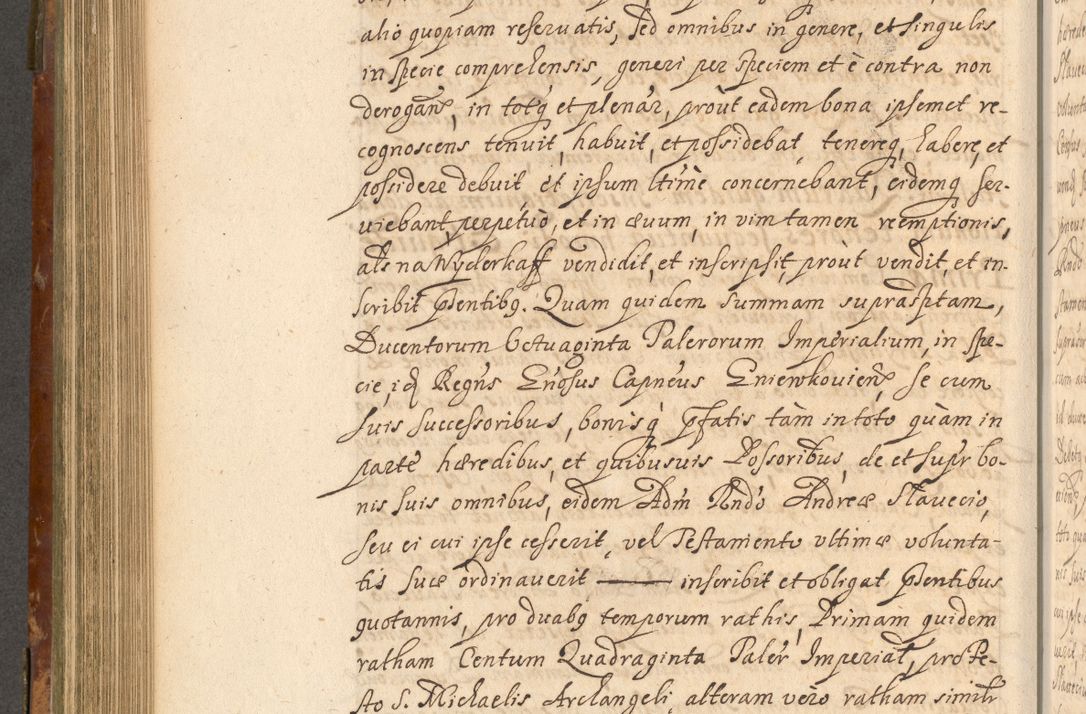 alio quopiam reseruatis, sed omnibus in genere, et singulis
in specie comprehensis, generi per speciem et è contra non
derogan̄, in totq́ et plenar, proùt eadem bona ipsemet re-
cognoscens tenuit, habuit, et possidebat, tenereq, habere, et
possidere debuit et ipsum ltime concernebant, eidemq ser-
uiebant, perpetuò, et in æuum, in vim tamen reemptionis,
als na Wyderkaff vendidit, et inscripsit, proùt vendit, et in-
scribit pntibq. Quam quidem summam suprasptam,
Ducentorum Octuaginta Talerorum Imperialium, in spe-
cie, idq Regn̄s Gn̄osus Capneus Gniewkovien̄ se cum
suis successoribus, bonisq́ pfatis tàm in toto quàm in
parte hæredibus, et quibusuis Possoribus, de et supr bo-
nis suis omnibus, eidem Adm̄ Rndo Andreæ Slavecio,
seu ei cui ipse cesserit, vel Testamento vltimæ volunta-
tis suæ ordinauerit —— inscribit et obligat pntibus
quotannis, pro duabq temporum rathis, Primam quidem
ratham Centum Quadraginta Taler Imperial, pro Fe-
sto S. Michaelis Archangeli, alteram verò ratham simili